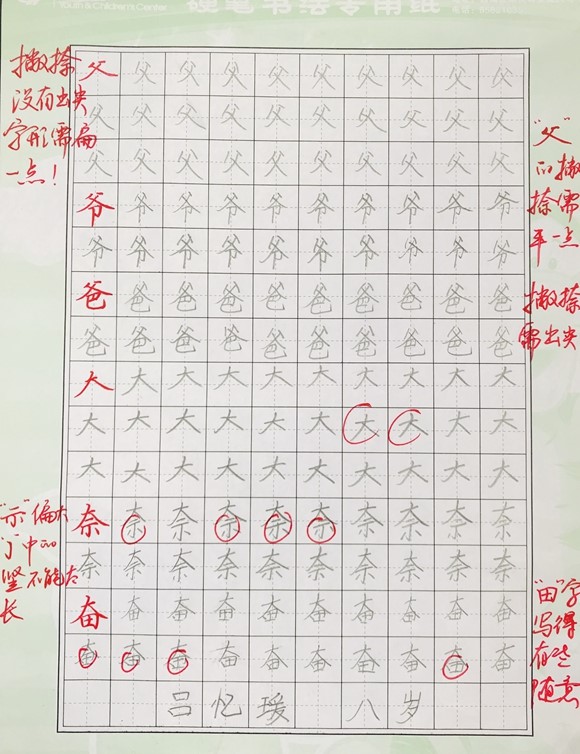 Youth & Children's Center
硬笔书法专用纸
撇捺
没有出尖
字形需扁
一点！
父父父父父父父父父父
父父父父父父父父父父
父父父父父父父父父父
爷爷爷爷爷爷爷爷爷爷
爷爷爷爷爷爷爷爷爷爷
爸爸爸爸爸爸爸爸爸爸
爸爸爸爸爸爸爸爸爸爸
大大大大大大大大大大
大大大大大大大大大大
大大大大大大大大大大
奈奈奈奈奈奈奈奈奈奈
奈奈奈奈奈奈奈奈奈奈
奋奋奋奋奋奋奋奋奋奋
奋奋奋奋奋奋奋奋奋奋
吕忆瑗 八岁
"父"
的撇
捺需
平一点
撇捺
需出尖
"示"偏大
中的
竖不能太
长
"田"字
写得
有些
随意